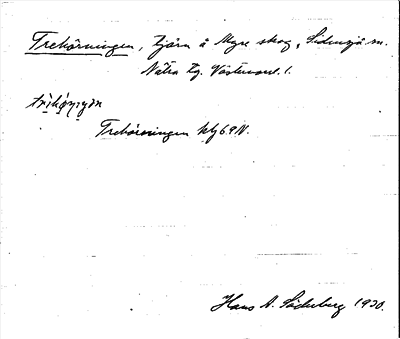 Trehörningen, tjärn å Myre skog, Sidensjö sn.
Nätra tg. Västernorrl. l.
Trehörningen
Hans A. Söderberg 1930.